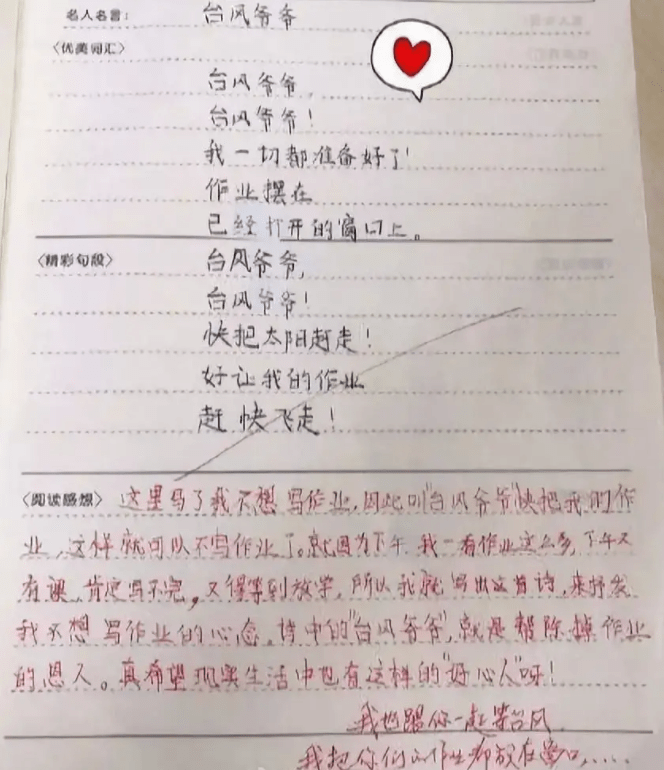 名人名言： 台风爷爷
〈优美词汇〉
台风爷爷，
台风爷爷！
我一切都准备好了！
作业摆在
已经打开的窗口上。
〈精彩句段〉 台风爷爷，
台风爷爷！
快把太阳赶走！
好让我的作业
赶快飞走！
〈阅读感想〉 这里写了我不想写作业，因此叫"台风爷爷"快把我的作
业，这样就可以不写作业了。就因为下午我一看作业这么多，下午又
有课，肯定写不完，又得等到放学，所以我就写出这首诗，来抒发
我不想写作业的心态。诗中的"台风爷爷"，就是帮除掉作业
的恩人。真希望现实生活中也有这样的"好心人"呀！
我也跟你一起等台风，
我把你们的作业都放在窗口……